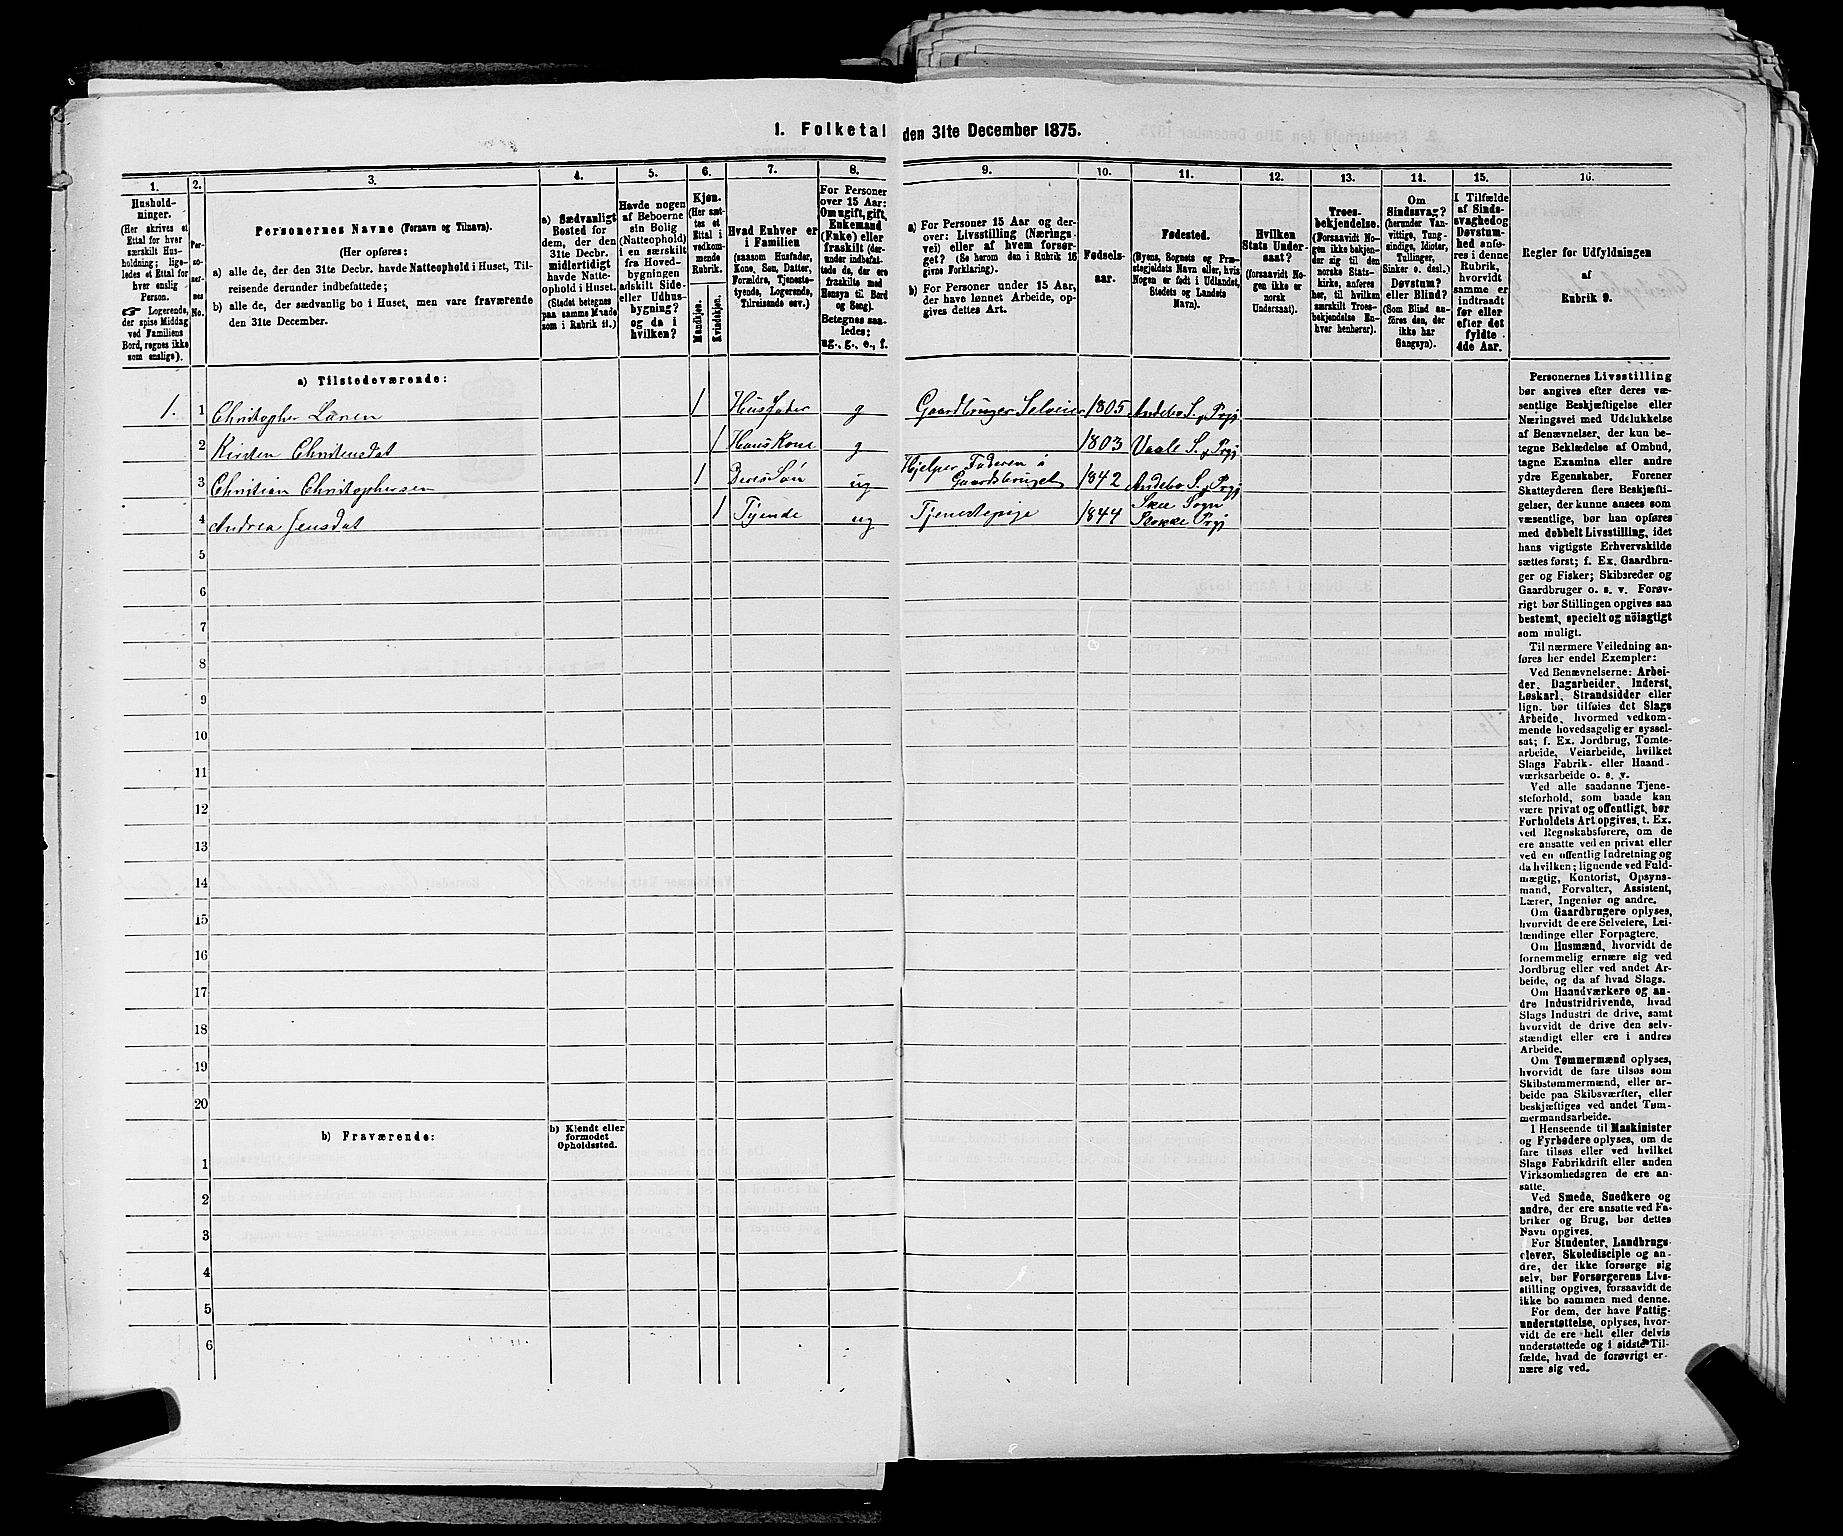 1. Folketal den 31te December 1875.
1. 2. 3. 4. 5. 6. 7. 8. 9. 10. 11. 12. 13. 14. 15. 16.
Hushold-
ninger.
(Her skrives et
Ettal for hver
særskilt Hus-
holdning; lige-
ledes et Ettal for
hver enslig
Person.
☞ Logerende,
der spise Middag
ved Familiens
Bord, regnes ikke
som enslige).
Per-
soner-
nes
No.
Personernes Navne (Fornavn og Tilnavn).
(Her opføres:
a) alle de, der den 31te Decbr. havde Natteophold i Huset, Til-
reisende derunder indbefattede;
b) alle de, der sædvanlig bo i Huset, men vare fraværende
den 31te December.
a) Sædvanligt
Bosted for
dem, der den
31te Decbr.
midlertidigt
havde Natte-
ophold i Huset.
(Stedet betegnes
paa samme Maade
som i Rubrik 11.)
Havde nogen
af Beboerne
sin Bolig
(Natteophold)
i en særskilt
fra Hoved-
bygningen
adskilt Side-
eller Udhus-
bygning?
og da i
hvilken?
Kjøn.
(Her sæt-
tes et
Ettal i
vedkom-
mende
Rubrik.
Mandkjøn.
Kvindekjøn.
Hvad Enhver er
i Familien
(saasom Husfader,
Kone, Søn, Datter,
Forældre, Tjeneste-
tyende, Logerende,
Tilreisende osv.)
For Personer
over 15 Aar:
Om ugift, gift,
Enkemand
(Enke) eller
fraskilt (der-
under indbefat-
tede de, der ere
fraskilte med
Hensyn til Bord
og Seng).
Betegnes saa-
ledes:
ug., g., e., f.
a) For Personer 15 Aar og der-
over: Livsstilling (Nærings-
vei) eller af hvem forsør-
get? (Se herom den i Rubrik 16
givne Forklaring).
b) For Personer under 15 Aar,
der have lønnet Arbeide, op-
gives dettes Art.
Fødsels-
aar.
Fødested.
(Byens, Sognets og Præ-
stegjeldets Navn eller, hvis
Nogen er født i Udlandet,
Stedets og Landets
Navn).
Hvilken
Stats Under-
saat?
(forsaavidt No-
gen ikke er
norsk
Undersaat).
Troes-
bekjendelse.
(Forsaavidt No-
gen ikke bekjen-
der sig til den
norske Stats-
kirke, anføres
her, til hvilken
særskilt Troes-
bekjendelse En-
hver henhører).
Om
Sindssvag?
(herunder Van-
vittige, Tung-
sindige, Idioter,
Tullinger,
Sinker o. desl.)
Døvstum?
eller Blind?
(Som Blind an-
føres den, der
ikke har
Gangsyn).
I Tilfælde
af Sinds-
svaghed og
Døvstum-
hed anfø-
res i denne
Rubrik,
hvorvidt
samme er
indtraadt
før eller
efter det
fyldte
4de Aar.
Regler for Udfyldningen
af
Rubrik 9.
a) Tilstedeværende:
1. 1 Christopher Larsen 1 Husfader g Gaardbruger Selveier 1805 Andebo S. & Prgj
2 Kirsten Christensdat 1 Hans Kone g 1803 Vaale S. & Prgj
3 Christian Christophersen 1 Deres Søn ug Hjelper Faderen i Gaardsbruget 1842 Andebo S. & Prgj
4 Andrea Jensdat 1 Tyende ug Tjenestepige 1844 Skee Sogn Stokke Prgj
5
6
7
8
9
10
11
12
13
14
15
16
17
18
19
20
b) Fraværende:
b) Kjendt eller
formodet
Opholdssted.
1
2
3
4
5
6
Personernes Livsstilling
bør angives efter deres væ-
sentlige Beskjæftigelse eller
Næringsvei med Udelukkelse
af Benævnelser, der kun be-
tegne Beklædelse af Ombud,
tagne Examina eller andre
ydre Egenskaber. Forener
Skatteyderen flere Beskjæfti-
gelser, der kunne ansees som
væsentlige, bør han opføres
med dobbelt Livsstilling, idet
hans vigtigste Erhvervskilde
sættes først; f. Ex. Gaardbru-
ger og Fisker; Skibsreder og
Gaardbruger o. s. v. Forøv-
rigt bør Stillingen opgives saa
bestemt, specielt og nöiagtigt
som muligt.
Til nærmere Veiledning an-
føres her endel Exempler:
Ved Benævnelserne: Arbei-
der, Dagarbeider, Inderst,
Løskarl, Strandsidder eller
lign. bør tilføies det Slags
Arbeide, hvormed vedkom-
mende hovedsagelig er syssel-
sat; f. Ex. Jordbrug, Tomte-
arbeide, Veiarbeide, hvilket
Slags Fabrik- eller Haand-
værksarbeide o. s. v.
Ved alle saadanne Tjene-
steforhold, som baade kan
være privat og offentligt, bør
Forholdets Art opgives, t. Ex.
ved Regnskabsførere, om de
ere ansatte ved en privat eller
ved en offentlig Indretning og
da hvilken; lignende ved Fuld-
mægtig, Kontorist, Opsyns-
mand, Forvalter, Assistent,
Lærer, Ingeniør og andre.
Om Gaardbrugere oplyses,
hvorvidt de ere Selveiere, Lei-
lændinge eller Forpagtere.
Om Husmænd, hvorvidt de
fornemmelig ernære sig ved
Jordbrug eller ved andet Ar-
beide, og da af hvad Slags.
Om Haandværkere og an-
dre Industridrivende, hvad
Slags Industri de drive, samt
hvorvidt de drive den selv-
stændigt eller ere i andres
Arbeide.
Om Tømmermænd oplyses,
hvorvidt de fare tilsøs som
Skibstømmermænd, eller ar-
beide paa Skibsværfter, eller
beskjæftiges ved andet Tøm-
mermandsarbeide.
I Henseende til Maskinister
og Fyrbødere oplyses, om de
fare tilsøs eller ved hvilket
Slags Fabrikdrift eller anden
Virksomhedsgren de ere an-
satte.
Ved Smede, Snedkere og
andre, der ere ansatte ved Fa-
briker og Brug, bør dettes
Navn opgives.
For Studenter, Landbrugs-
elever, Skoledisciple og an-
dre, der ikke forsørge sig
selv, bør Forsørgerens Livs-
stilling opgives, forsaavidt de
ikke bo sammen med denne.
For dem, der have Fattig-
understøttelse, oplyses, hvor-
vidt de ere helt eller delvis
understøttede og i sidste Til-
fælde, hvad de forøvrigt er-
nære sig ved.